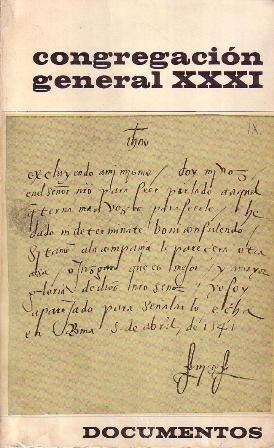 congregación
general XXXI
Ihus
IX.
excluyendo a mi mismo / doy mi voz
en el señor nro para ser perlado a aquel
q̃ terna mas vozes para serlo / he
dado indeterminate boni consulendo /
si tamē a la compañia le pareciere otra
cosa o juzgare que es mejor / y a mayor
gloria de dios nro señor / yo soy
aparejado para señalarlo echa
en Roma 5 de abril, de 1541
DOCUMENTOS